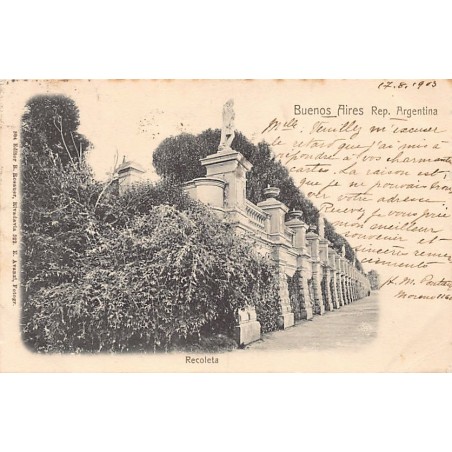 17.8.1903
Buenos Aires Rep. Argentina
Mlle Veuillez m'excuser
le retard que j'ai mis à
répondre à vos charmantes
cartes. La raison est,
que je ne pouvais trouver
votre adresse
Recevez je vous prie
mon meilleur
souvenir et
sincère remer-
ciements
Recoleta
Editor R. Rosauer, Rivadavia 522.